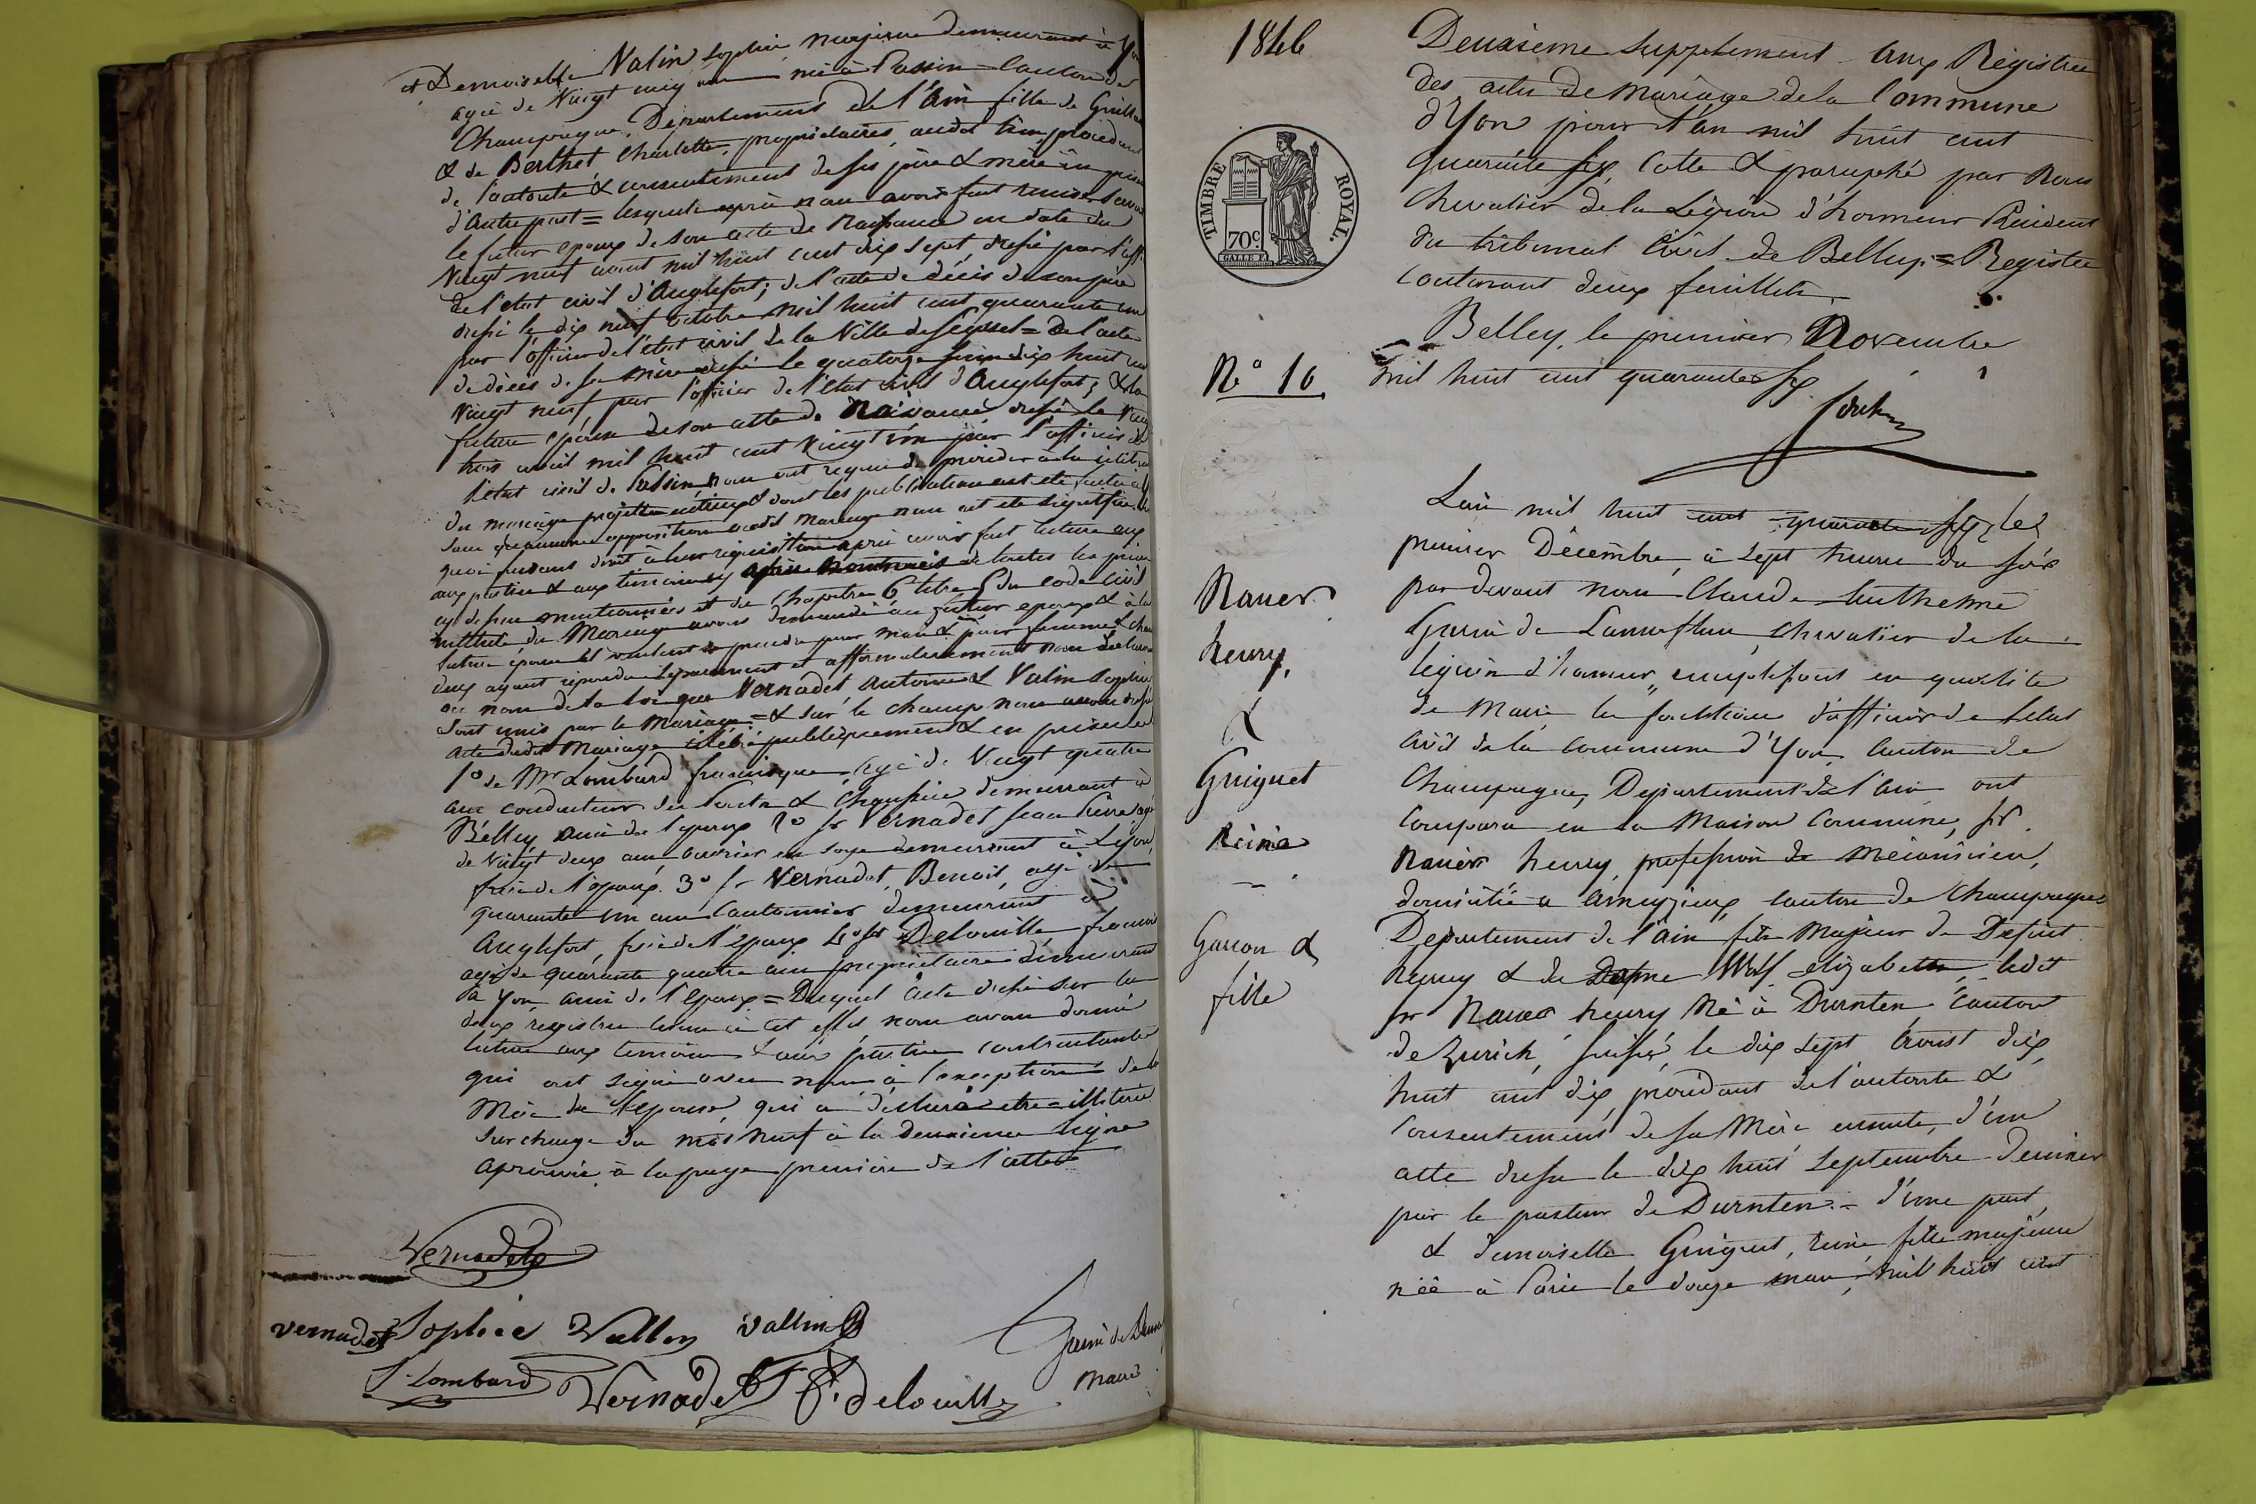 et Demoiselle Valin Sophie majeure demeurant à Yon
agée de Vingt cinq ans née à Passin Canton de
Champagne, Département de l'Ain fille de
& de Berthet Charlotte, propriétaires audit lieu procédant
de l'autorité & consentement de ses père & mère
d'autre part = lesquels après nous avoir fait remise savoir
le futur epoux de son acte de Naissance en date du
Vingt neuf aout mil huit cent dix sept, dressé par l'off.
de l'etat civil d'Anglefort; de l'acte de décès de son père
dressé le dix neuf octobre mil huit cent quarante un
par l'officier de l'état civil de la Ville de Seyssel = De l'acte
de décès de sa Mère dressé le quatorze dix huit cent
Vingt neuf, par l'officier de l'état civil d'Anglefort; & la
future épouse de son acte de Naissance dressé le Vingt
trois avril mil huit cent vingt un par l'officier de
l'état civil de Passin, nous ont requis de procéder à la
du mariage projetté entreux & dont les publications ont été
sans qu'aucune opposition audit mariage nous ait été signifiée
quoi faisant droit à leur réquisition après avoir fait lecture aux
aux parties & aux temoins de toutes les pièces
cy dessus mentionnées et du Chapitre 6 titre 5 du code civil
intitulé du Mariage avons demandé au futur epoux & à la
future épouse s'il veulent se prendre pour mari & pour femme
deux ayant répondu séparément et affirmativement nous
au nom de la loi que Vernadet Antoine & Valin Sophie
sont unis par le Mariage = & sur le champ nous avons dressé
acte dudit Mariage célébré publiquement & en présence
1° de Mr Lombard agé de Vingt quatre
ans conducteur des Ponts & Chaussées demeurant à
Belley ami de l'epoux 2° sr Vernadet Jean Pierre agé
de Vingt deux ans ouvrier en soye demeurant à Lyon,
frère de l'époux. 3° sr Vernadet, Benoit, agé de
quarante un ans Cantonnier demeurant à
Anglefort, frère de l'époux 4° sr Delouille
agé de quarante quatre ans propriétaire demeurant
à Yon ami de l'époux = Duquel acte dressé sur les
deux registres tenus à cet effet nous avons donné
lecture aux temoins & aux parties contractantes
qui ont signé avec nous à l'exception de la
Mère de l'épouse qui a déclaré etre illitérée
surcharge du mot neuf à la deuxieme ligne
aprouvée à la page première de l'acte
Vernadet
vernadet Sophie Vallin Vallin
Lombard Vernadet F. delouille
Maire
1846
Deuxieme supplement aux Régistres
des actes de Mariage de la Commune
d'Yon pour l'an mil huit cent
quarante six, Cotté & paraphé par Nous
Chevalier de la Légion d'honneur Président
du tribunal Civil de Belley = Registre
contenant deux feuillets
Belley, le premier Novembre
mil huit cent quarante six
TIMBRE ROYAL.
70c
N° 16
L'an mil huit cent quarante six, le
premier Décembre, à sept heures du soir
par devant nous Claude Anthelme
de Chevalier de la
légion d'honneur, remplissant en qualité
de Maire les fonctions d'officier de l'état
civil de la commune d'Yon, Canton de
Champagne, Département de l'ain ont
comparu en la Maison Commune, sr
henry, profession de mécanicien,
domicilié à Ameyzieux canton de Champagne
Département de l'Ain fils Majeur de Défunt
henry & de Dame Wolf elizabette, ledit
sr henry né à Durnten, Canton
de Zurich, Suisse, le dix sept Aoust dix
huit cent dix, procédant de l'autorité &
consentement de sa Mère ensuite, d'un
acte dressé le dix huit Septembre dernier
par le pasteur de Durnten. = d'une part,
& demoiselle Guiguet, reine fille majeure
née à Paris le douze mars, mil huit cent
henry,
&
Guiguet
Reine
Garçon &
fille